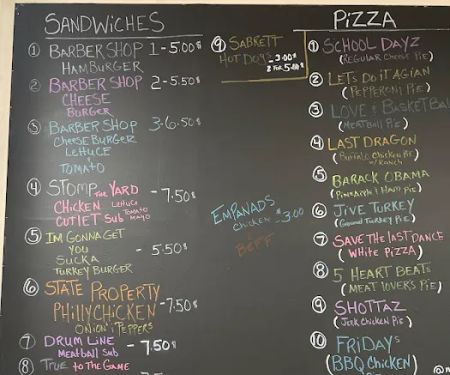 SANDWICHES
① BARBER SHOP 1-5.00$
HAMBURGER
② BARBER SHOP 2-5.50$
CHEESE
BURGER
③ BARBER SHOP 3-6.50$
CHEESE BURGER
LETTUCE
&
TOMATO
④ STOMP THE YARD - 7.50$
CHICKEN LETTUCE
CUTLET SUB TOMATO
MAYO
⑤ IM GONNA GET
YOU - 5.50$
SUCKA
TURKEY BURGER
⑥ STATE PROPERTY
PHILLY CHICKEN -7.50$
ONION & PEPPERS
⑦ DRUM LINE - 7.50$
MEATBALL SUB
⑧ TRUE TO THE GAME
⑨ SABRETT
HOT DOGS - 3.00$
2 FOR 5.00$
EMPANADS
CHICKEN $3.00
BEEF
PIZZA
① SCHOOL DAYZ
(REGULAR CHEESE PIE)
② LET'S DO IT AGIAN
(PEPPERONI PIE)
③ LOVE & BASKETBAL
(MEATBALL PIE)
④ LAST DRAGON
(BUFFALO CHICKEN PIE)
W/RANCH
⑤ BARACK OBAMA
(PINEAPPLE & HAM PIE)
⑥ JIVE TURKEY
(GROUND TURKEY PIE)
⑦ SAVE THE LAST DANCE
(WHITE PIZZA)
⑧ 5 HEART BEATS
(MEAT LOVERS PIE)
⑨ SHOTTAZ
(JERK CHICKEN PIE)
⑩ FRIDAYS
(BBQ CHICKEN)